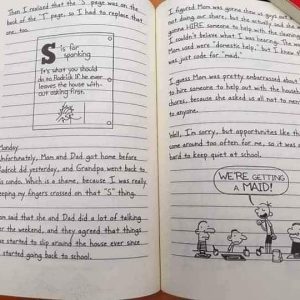 Then I realized that the "S" page was on the
back of the "T" page, so I had to replace that
one, too.
S is for
spanking
It's what you should
do to Rodrick if he ever
leaves the house with-
out asking first.
Monday
Unfortunately, Mom and Dad got home before
Rodrick did yesterday, and Grandpa went back to
his condo. Which is a shame, because I was really
keeping my fingers crossed on that "S" thing.
Mom said that she and Dad did a lot of talking
over the weekend, and they agreed that things
started to slip around the house ever since
started going back to school.
I figured Mom was gonna
not doing our share, but she actually said
gonna HIRE someone to help with the cleaning
I couldn't believe what I was hearing. The
Mom used were "domestic help," but I knew
was just code for "maid."
I guess Mom was pretty embarrassed about
to hire someone to help out with the house
chores, because she asked us all not to
to anyone.
Well, I'm sorry, but opportunities like th
come around too often for me, so it was
hard to keep quiet at school.
WE'RE GETTING
A MAID!